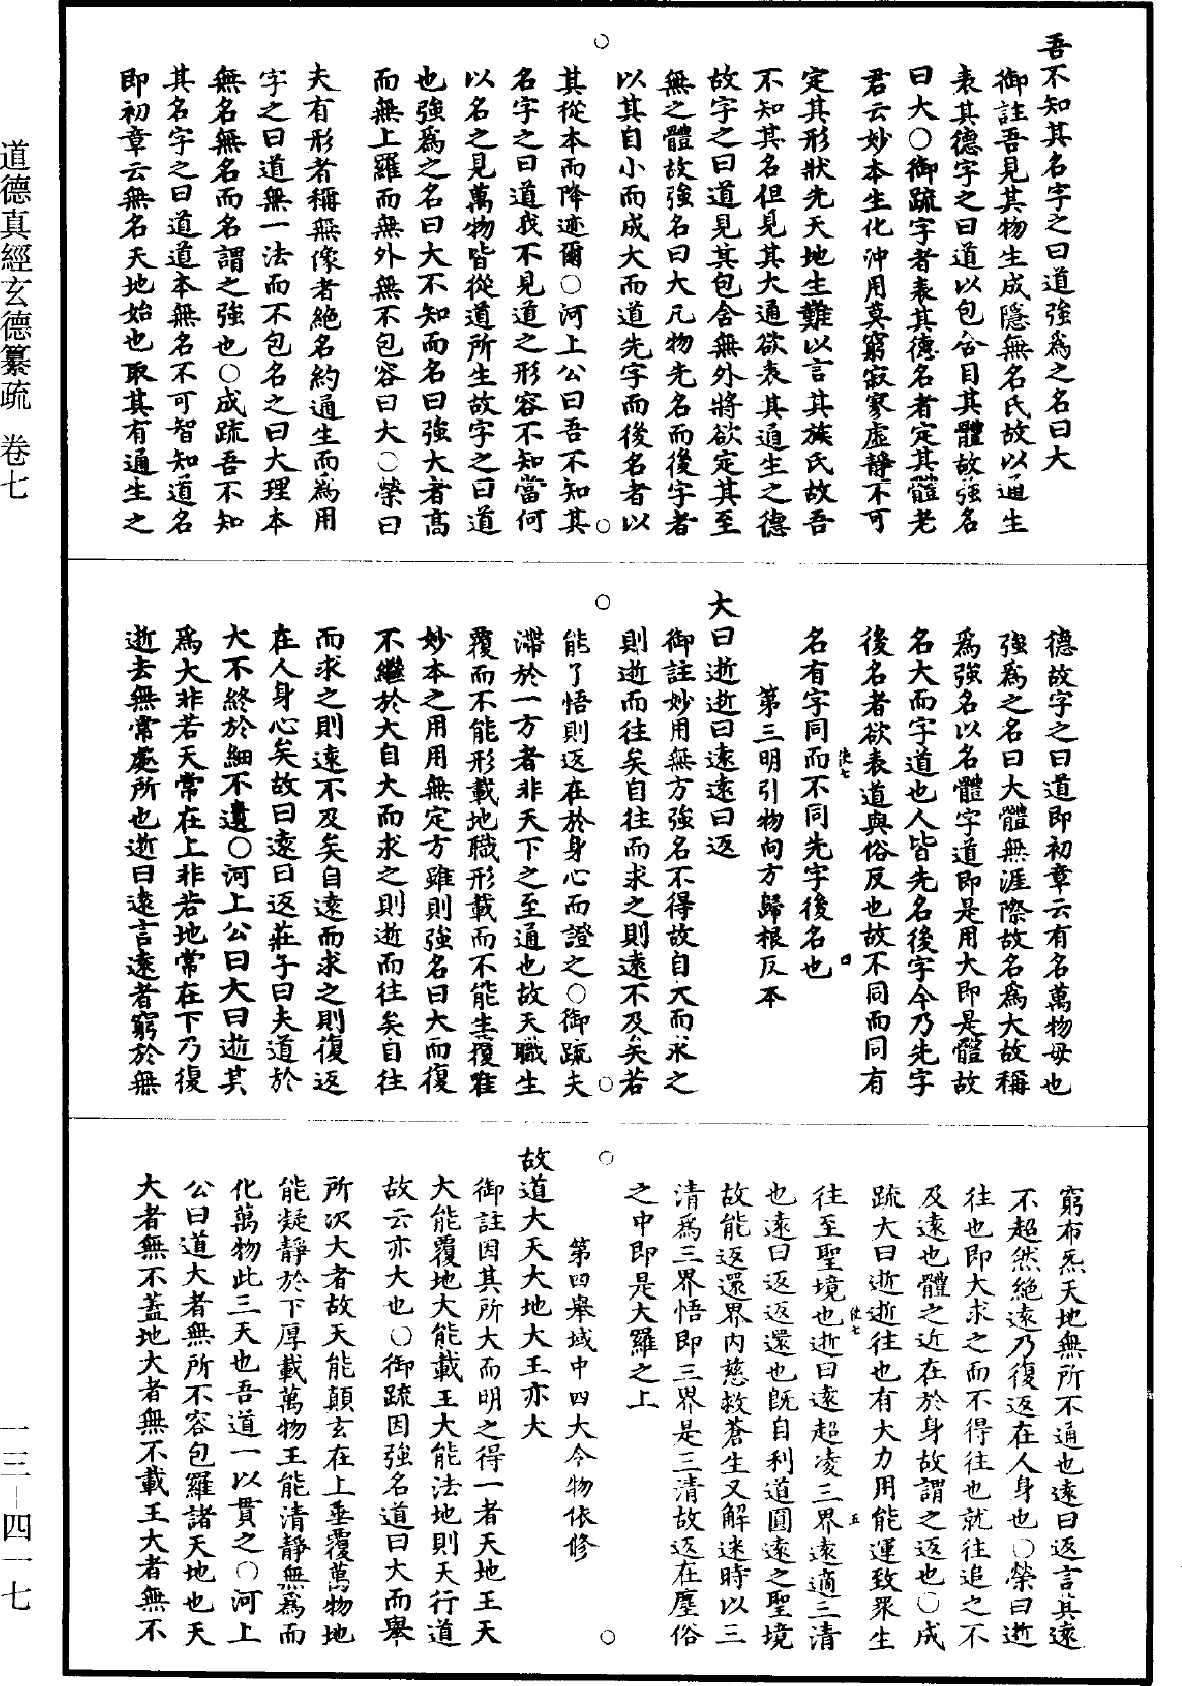 吾不知其名字之曰道強爲之名曰大
御註吾見其物生成隱無名氏故以通生
表其德字之曰道以包含目其體故強名
曰大○御疏字者表其德名者定其體老
君云妙本生化沖用莫窮寂寥虛靜不可
定其形狀先天地生難以言其族氏故吾
不知其名但見其大通欲表其通生之德
故字之曰道見其包含無外將欲定其至
無之體故強名曰大凡物先名而後字者
以其自小而成大而道先字而後名者以
其從本而降迹爾○河上公曰吾不知其
名字之曰道我不見道之形容不知當何
以名之見萬物皆從道所生故字之曰道
也強爲之名曰大不知而名曰強大者高
而無上羅而無外無不包容曰大○榮曰
夫有形者稱無像者絕名約通生而爲用
字之曰道無一法而不包名之曰大理本
無名無名而名謂之強也○成疏吾不知
其名字之曰道道本無名不可智知道名
即初章云無名天地始也取其有通生之
德故字之曰道即初章云有名萬物母也
強爲之名曰大體無涯際故名爲大故稱
爲強名以名體字道即是用大即是體故
名大而字道也人皆先名後字今乃先字
後名者欲表道與俗反也故不同而同有
使七
名有字同而不同先字後名也
四
第三明引物向方歸根反本
大曰逝逝曰遠遠曰返
御註妙用無方強名不得故自大而求之
則逝而往矣自往而求之則遠不及矣若
能了悟則返在於身心而證之○御疏夫
滯於一方者非天下之至通也故天職生
覆而不能形載地職形載而不能生覆唯
妙本之用用無定方雖則強名曰大而復
不繼於大自大而求之則逝而往矣自往
而求之則遠不及矣自遠而求之則復返
在人身心矣故曰遠曰返莊子曰夫道於
大不終於細不遺○河上公曰大曰逝其
爲大非若天常在上非若地常在下乃復
逝去無常處所也逝曰遠言遠者窮於無
窮布炁天地無所不通也遠曰返言其遠
不超然絕遠乃復返在人身也○榮曰逝
往也即大求之而不得往也就往追之不
及遠也體之近在於身故謂之返也○成
疏大曰逝逝往也有大力用能運致眾生
使七
五
往至聖境也逝曰遠超凌三界遠適三清
也遠曰返返還也既自利道圓遠之聖境
故能返還界內慈救蒼生又解迷時以三
清爲三界悟即三界是三清故返在塵俗
之中即是大羅之上
第四舉域中四大令物依修
故道大天大地大王亦大
御註因其所大而明之得一者天地王天
大能覆地大能載王大能法地則天行道
故云亦大也○御疏因強名道曰大而舉
所次大者故天能顛玄在上垂覆萬物地
能凝靜於下厚載萬物王能清靜無爲而
化萬物此三天也吾道一以貫之○河上
公曰道大者無所不容包羅諸天地也天
大者無不蓋地大者無不載王大者無不
道德真經玄德纂疏　卷七
一三-四一七